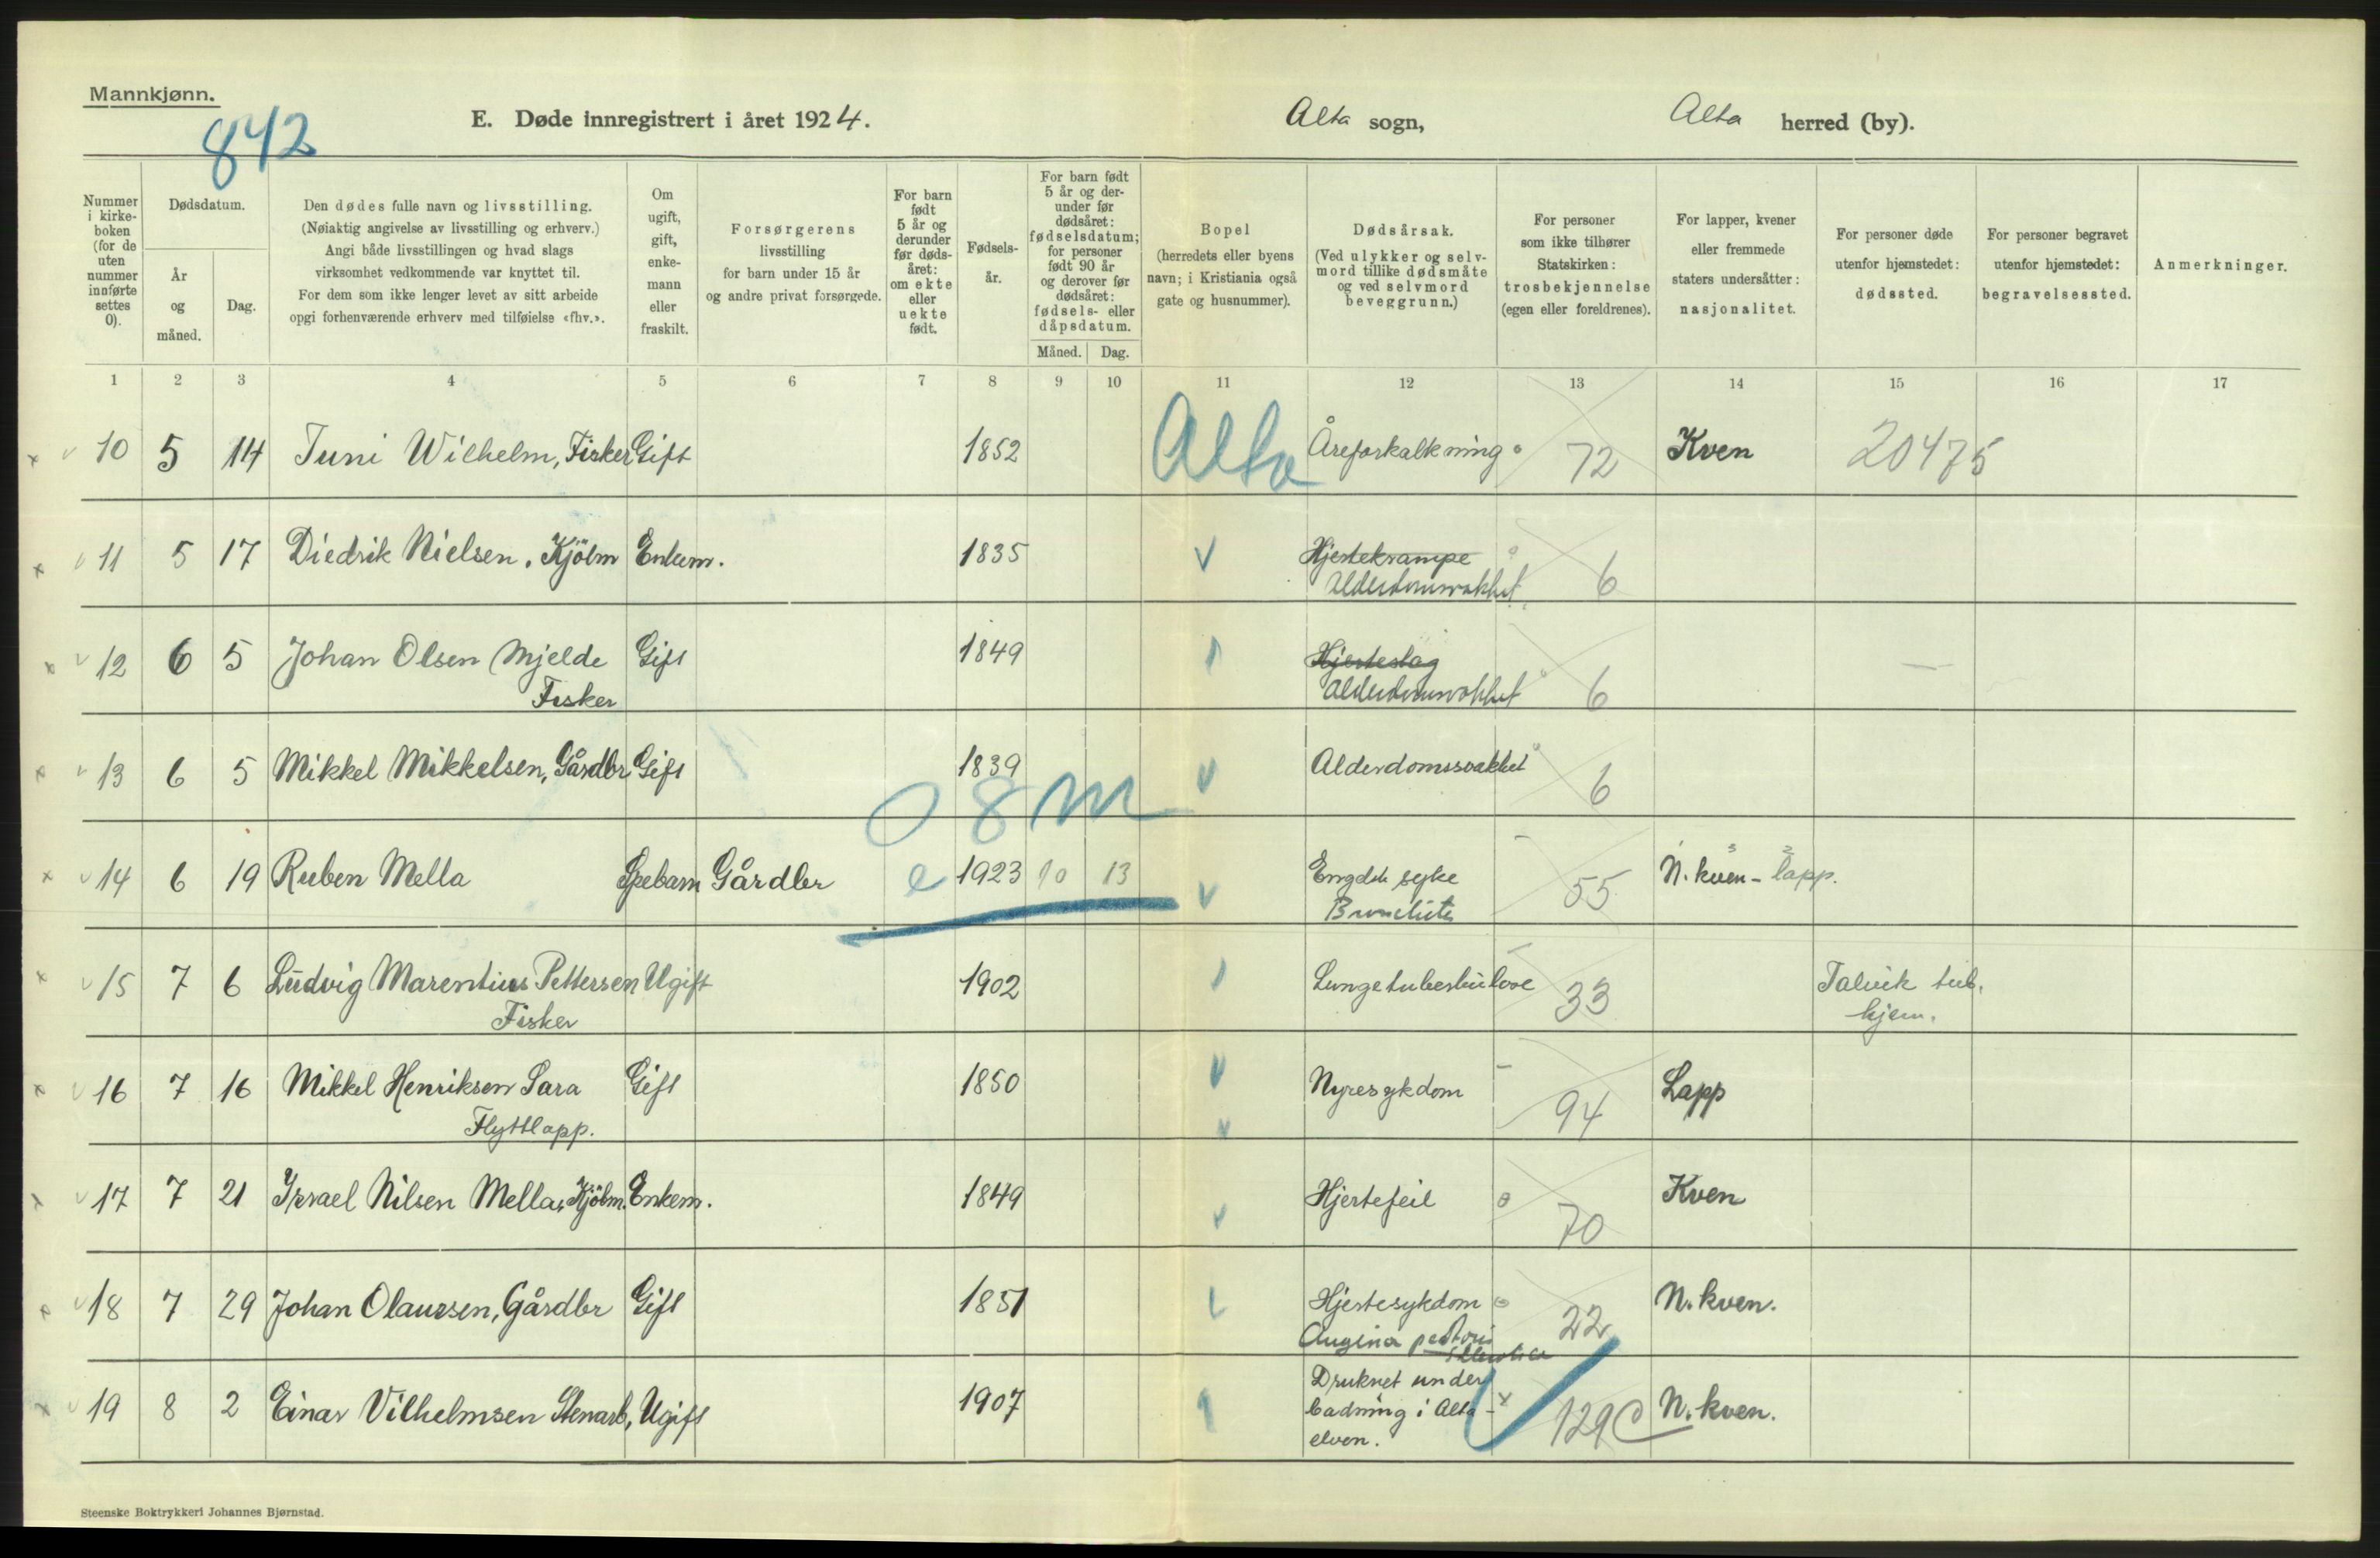 Mannkjønn.
842
E. Døde innregistrert i året 1924. Alta sogn, Alta herred (by).
Nummer i kirke-boken (for de uten nummer innførte settes 0).
Dødsdatum.
År og måned.
Dag.
Den dødes fulle navn og livsstilling.
(Nøiaktig angivelse av livsstilling og erhverv.)
Angi både livsstillingen og hvad slags
virksomhet vedkommende var knyttet til.
For dem som ikke lenger levet av sitt arbeide
opgi forhenværende erhverv med tilføielse «fhv.».
Om ugift, gift, enke-mann eller fraskilt.
Forsørgerens
livsstilling
for barn under 15 år
og andre privat forsørgede.
For barn født 5 år og derunder før døds-året: om ekte eller uekte født.
Fødsels-år.
For barn født 5 år og der-under før dødsåret: fødselsdatum; for personer født 90 år og derover før dødsåret: fødsels- eller dåpsdatum.
Måned. Dag.
Bopel
(herredets eller byens
navn; i Kristiania også
gate og husnummer).
Dødsårsak.
(Ved ulykker og selv-
mord tillike dødsmåte
og ved selvmord
beveggrunn.)
For personer
som ikke tilhører
Statskirken:
trosbekjennelse
(egen eller foreldrenes).
For lapper, kvener
eller fremmede
staters undersåtter:
nasjonalitet.
For personer døde
utenfor hjemstedet:
dødssted.
For personer begravet
utenfor hjemstedet:
begravelsessted.
Anmerkninger.
1 2 3 4 5 6 7 8 9 10 11 12 13 14 15 16 17
10 5 14 Tuni Wilhelm, Fisker Gift 1852 Alta Åreforkalkning 72 Kven 20475
11 5 17 Diedrik Nielsen, Kjölm Enkem. 1835 Hjertekrampe 6
Alderdomsvakhet
12 6 5 Johan Olsen Mjelde Gift 1849 Hjerteslag 6
Fisker Alderdomsvakhet
13 6 5 Mikkel Mikkelsen, Gårdbr Gift 1839 Alderdomssvakhet 6
0 8 m
14 6 19 Ruben Mella Spebarn Gårdbr e 1923 10 13 Engelsk syke 55 N. kven - lapp.
Bronchitis
15 7 6 Ludvig Marentius Pettersen Ugift 1902 Lungetuberkulose 33 Talvik tub.
Fisker hjem.
16 7 16 Mikkel Henriksen Sara Gift 1850 Nyresykdom 94 Lapp
Flyttlapp.
17 7 21 Israel Nilsen Mella, Kjölm. Enkem. 1849 Hjertefeil 70 Kven
18 7 29 Johan Olaussen, Gårdbr Gift 1851 Hjertesykdom 22 N. kven.
Angina pectoris
19 8 2 Einar Vilhelmsen Stenarb, Ugift 1907 Druknet under
badning i Alta- 129 C N. kven.
elven.
Steenske Boktrykkeri Johannes Bjørnstad.